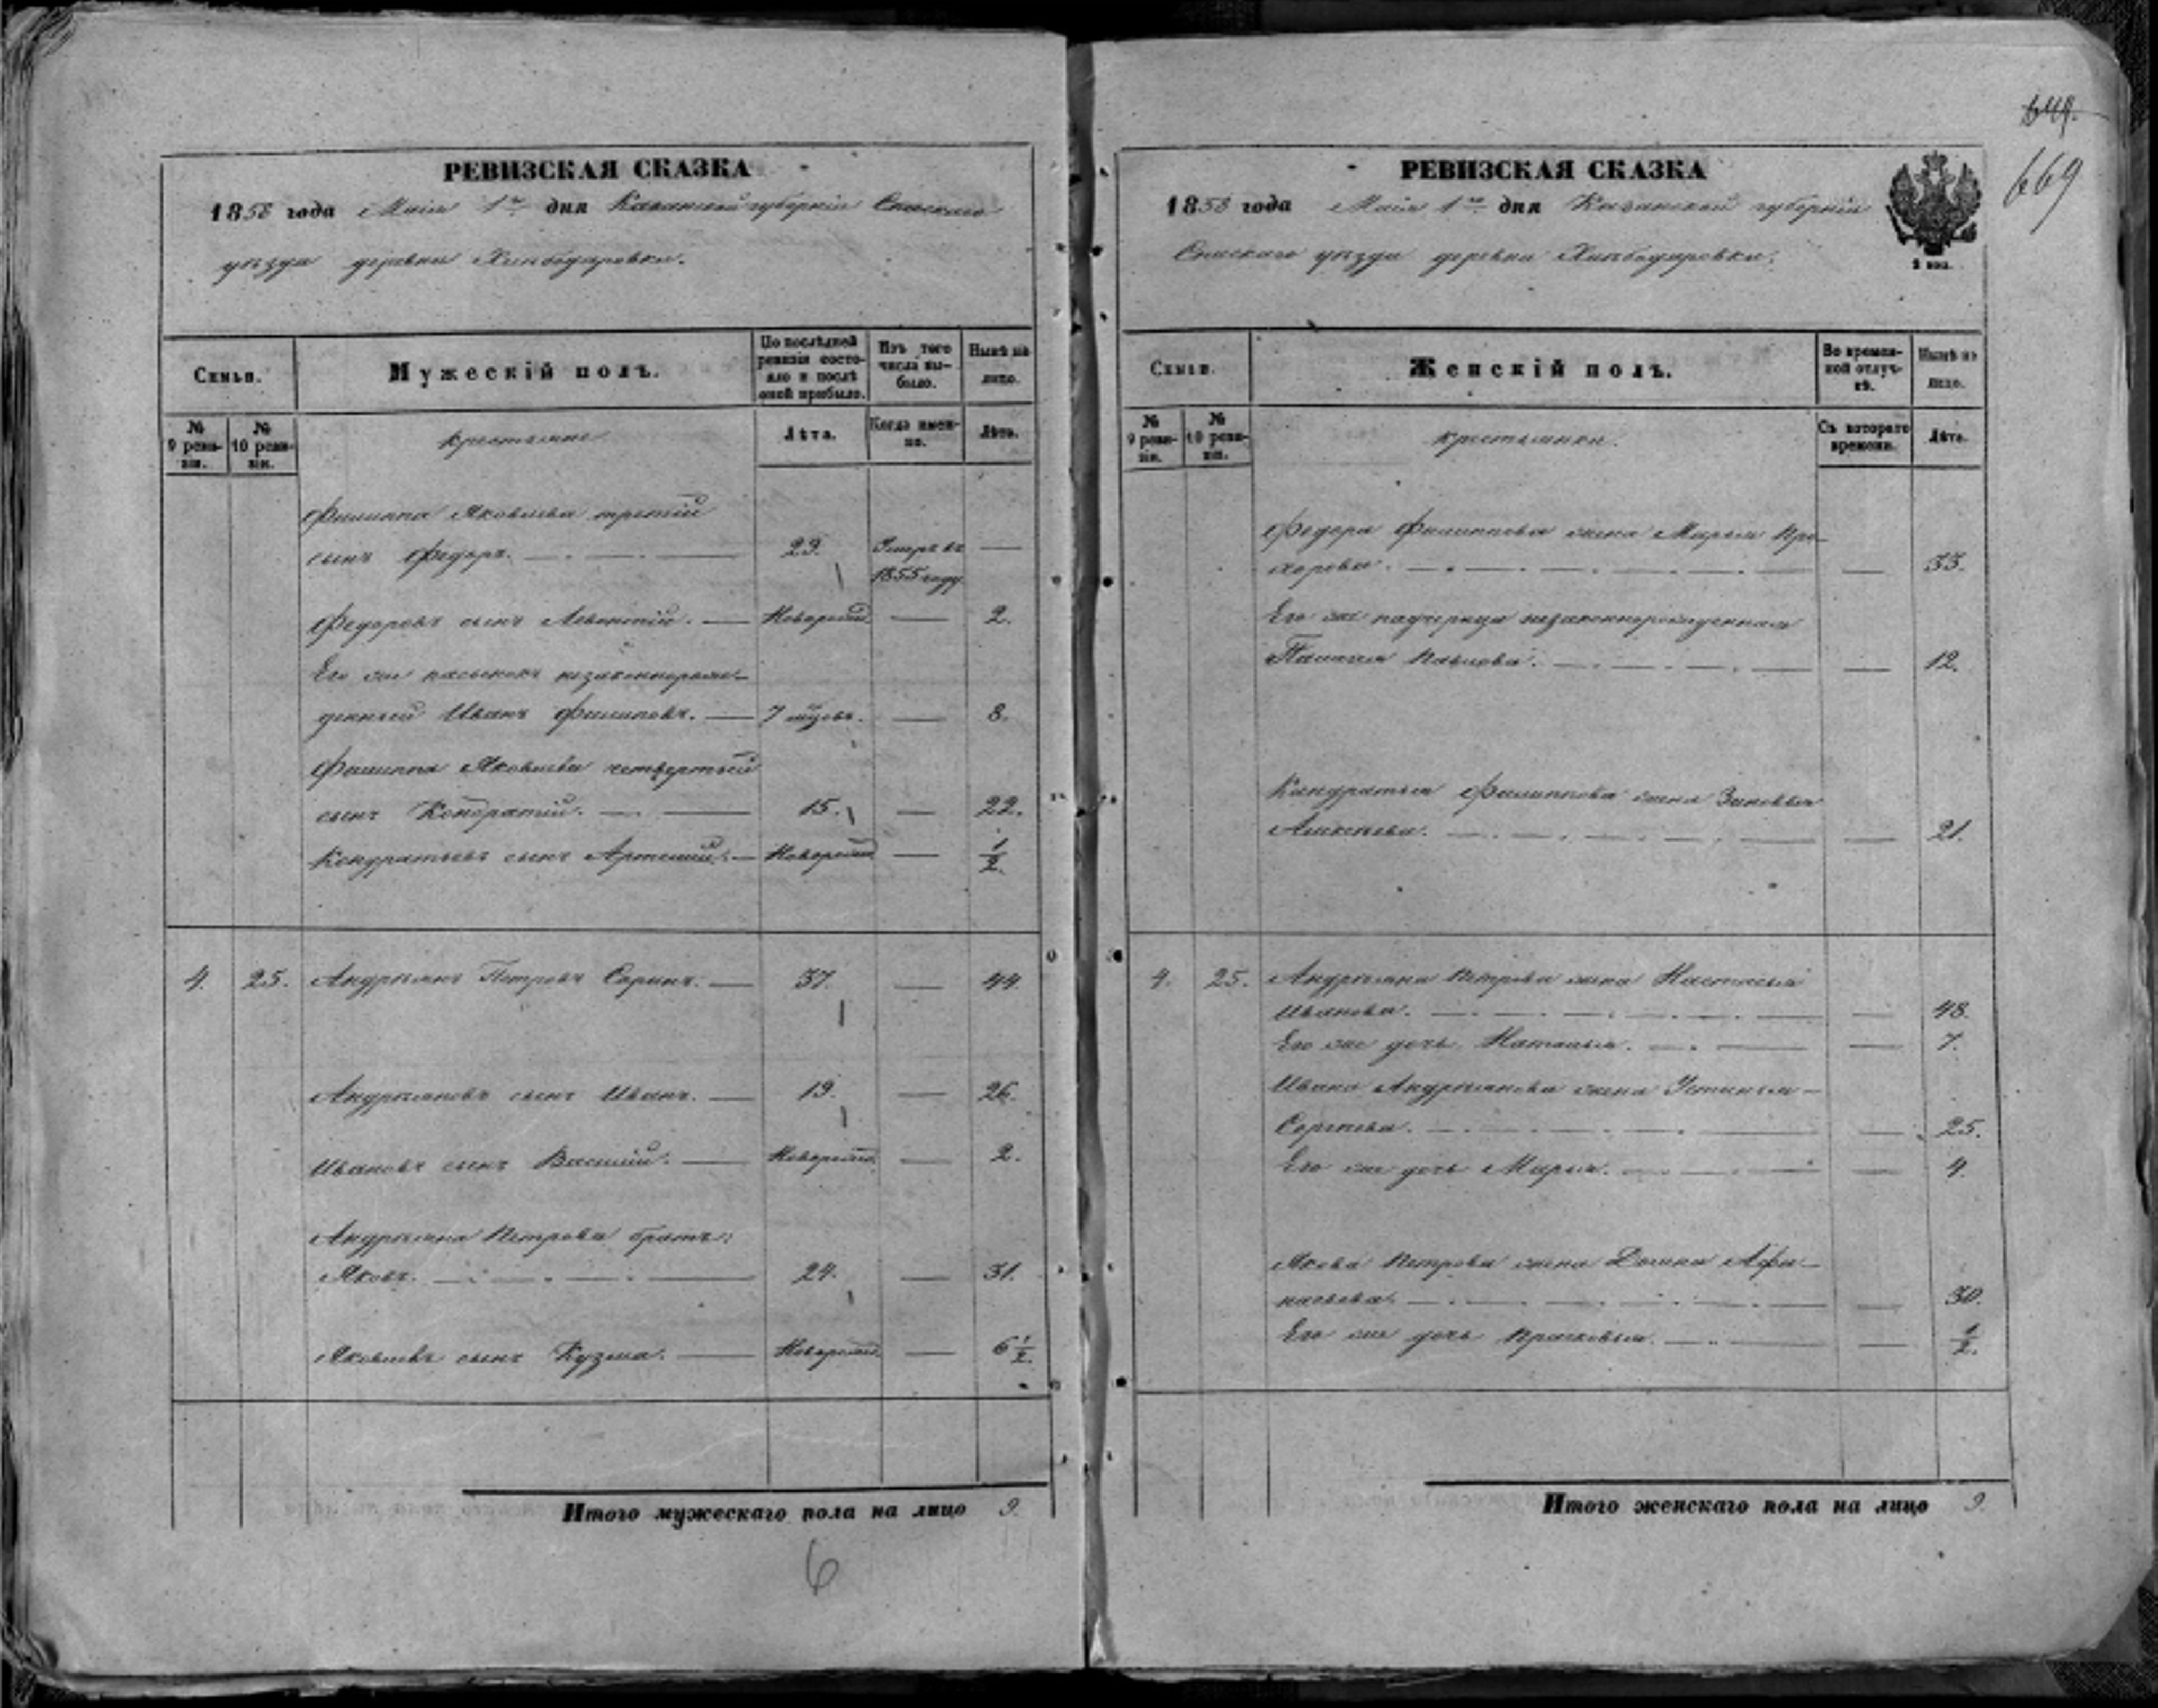 РЕВИЗСКАЯ СКАЗКА
1858 года Маія 1го дня Казанской губерніи Спаскаго
уѣзда деревни
Семьи.
Мужескій полъ.
По послѣдней ревизіи состояло и послѣ оной прибыло.
Изъ того числа выбыло.
Нынѣ на лицо.
№ 9 ревизіи.
№ 10 ревизіи.
крестьяне
Лѣта.
Когда именно.
Лѣта.
Филиппа Яковлева третій
сынъ Федоръ. 29. Умеръ въ
1855 году
Федоровъ сынъ Леонтій. Новорожд. 2.
Его же пасынокъ незаконнорож-
денный Иванъ Филиповъ. 7 мцовъ. 8.
Филиппа Яковлева четвертый
сынъ Кондратій. 15. 22.
Кондратьевъ сынъ Артемій. Новорожд. 1/2.
4. 25. Андреянъ Петровъ 37. 44.
Андреяновъ сынъ Иванъ. 19. 26.
Ивановъ сынъ Василій. Новорожд. 2.
Андреяна Петрова братъ
Яковъ. 24. 31.
Яковлевъ сынъ Кузма. Новорожд. 6 1/2.
Итого мужескаго пола на лицо 9.
6
649.
669
РЕВИЗСКАЯ СКАЗКА
1858 года Маія 1го дня Казанской губерніи
Спаскаго уѣзда деревни
Семьи.
Женскій полъ.
Во временной отлучкѣ.
Нынѣ на лицо.
№ 9 ревизіи.
№ 10 ревизіи.
крестьянки.
Съ котораго времени.
Лѣта.
Федора Филиппова жена Марья Про-
хорова. 33.
Его же падчерица незаконнорожденная
Палагея Павлова. 12.
Кандратья Филиппова жена Зиновья
Алексѣева. 21.
4. 25. Андреяна Петрова жена Настасья
Иванова. 48.
Его же дочь Наталья. 7.
Ивана Андреянова жена Устинья
Сергѣева. 25.
Его же дочь Марья. 4.
Якова Петрова жена Домна Афа-
насьева. 30.
Его же дочь Прасковья. 1/2.
Итого женскаго пола на лицо 9.